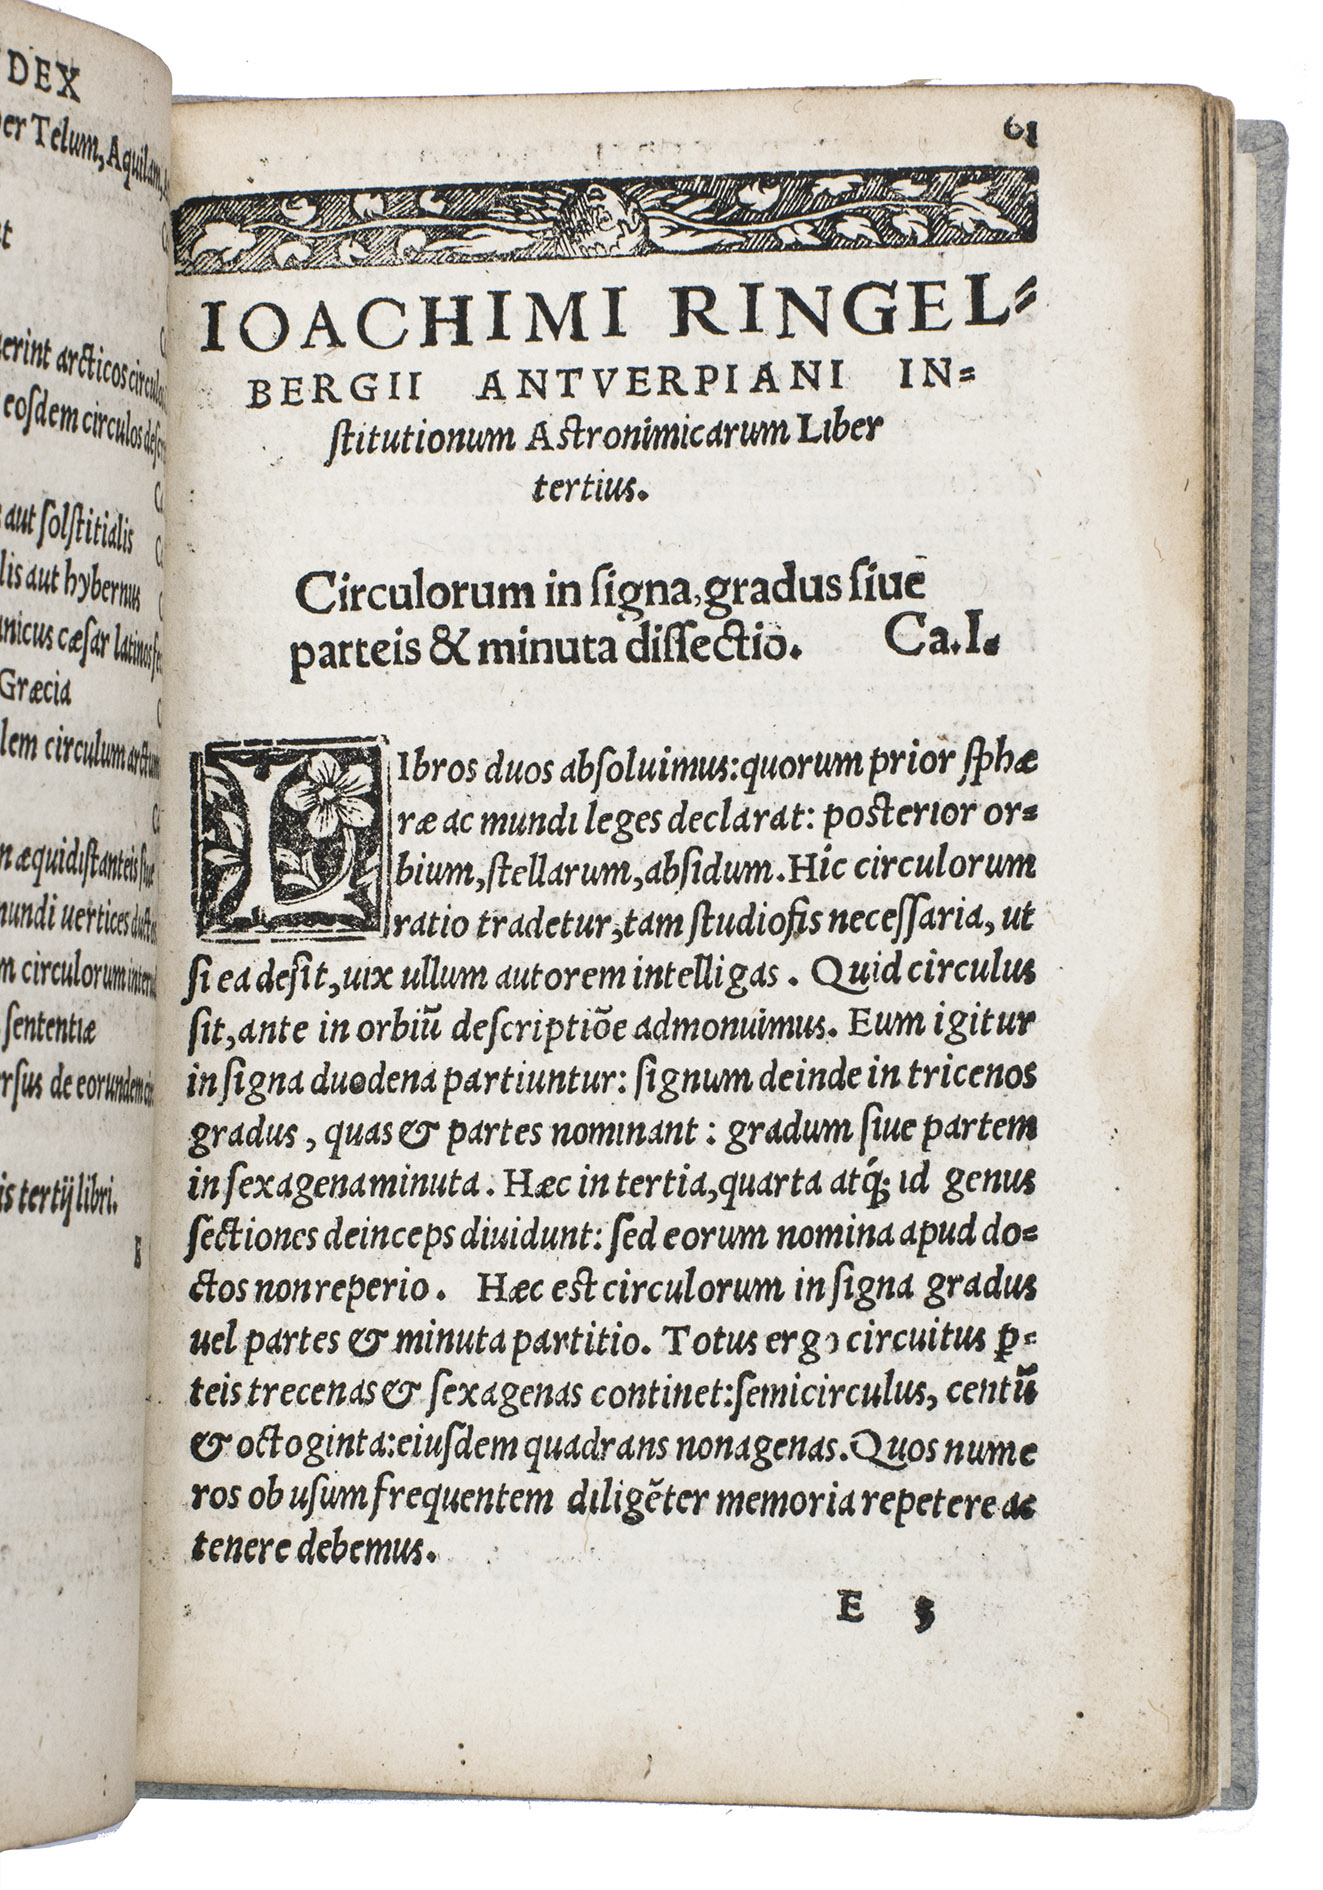 DEX
er Telum, Aquilam,
erint arcticos circulos
eosdem circulos
aut ſolſtitialis
lis aut hybernus
nicus cæſar latinos
Græcia
lem circulum
n æquidiſtanteis
mundi uertices
m circulorum
ſententiæ
rſus de eorundem
is tertij libri.
61
IOACHIMI RINGEL=
BERGII ANTVERPIANI IN=
ſtitutionum Aſtronimicarum Liber
tertius.
Circulorum in ſigna, gradus ſiue
parteis & minuta diſſectio. Ca. I.
LIbros duos abſoluimus: quorum prior ſphæ
ræ ac mundi leges declarat: poſterior or=
bium, ſtellarum, abſidum. Hic circulorum
ratio tradetur, tam ſtudioſis neceſſaria, ut
ſi ea deſit, uix ullum autorem intelligas. Quid circulus
ſit, ante in orbiũ deſcriptiõe admonuimus. Eum igitur
in ſigna duodena partiuntur: ſignum deinde in tricenos
gradus, quas & partes nominant: gradum ſiue partem
in ſexagena minuta. Hæc in tertia, quarta atq́; id genus
ſectiones deinceps diuidunt: ſed eorum nomina apud do=
ctos non reperio. Hæc eſt circulorum in ſigna gradus
uel partes & minuta partitio. Totus ergo circuitus ꝑ=
teis trecenas & ſexagenas continet: ſemicirculus, centũ
& octoginta: eiuſdem quadrans nonagenas. Quos nume
ros ob uſum frequentem diligẽter memoria repetere ac
tenere debemus.
E 3